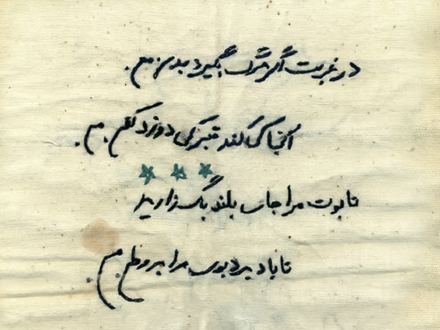 در غربت اگر مرگ بگیرد بدن من
آیا کی کند قبر کی دوزد کفن من
تابوت مرا جای بلند بگذارید
تا باد برد بوی مرا بر وطن من